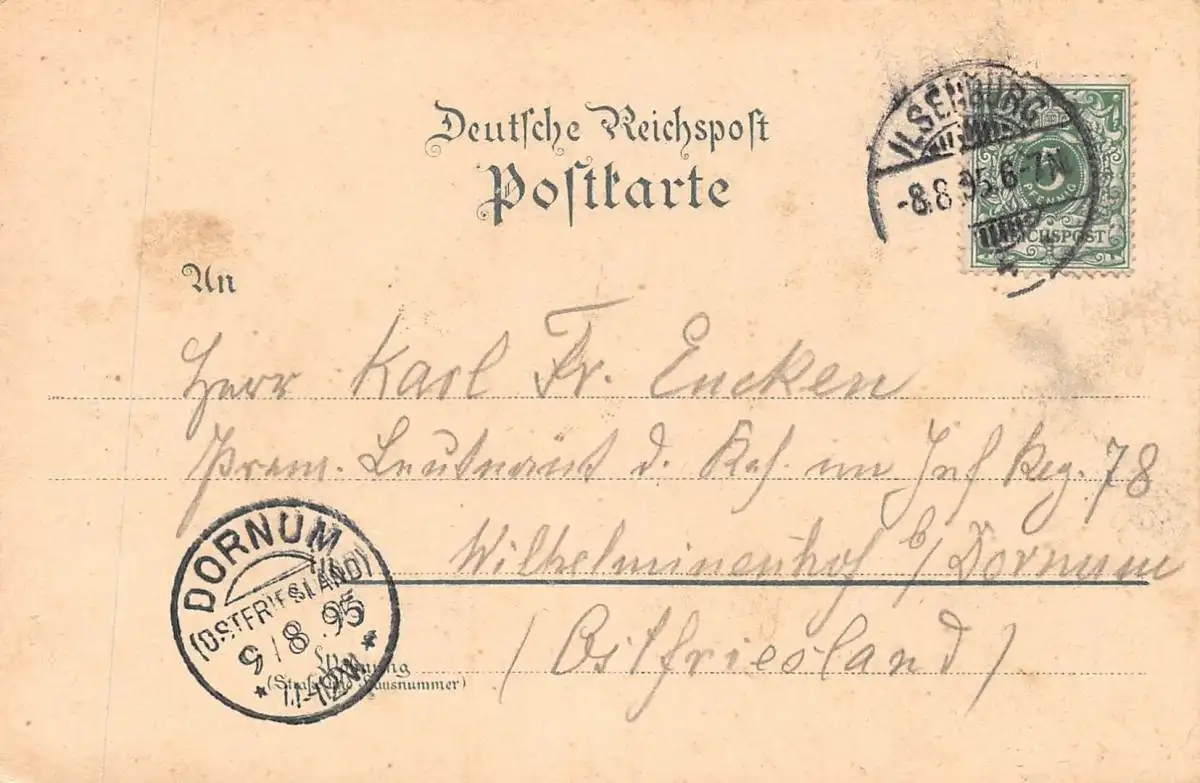 Deutsche Reichspost
Postkarte
ILSENBURG
-8.8.95.6-7N
5
PFENNIG
REICHSPOST
An
Herr Karl Fr. Eucken
Prem. Leutnant d. Res. im Inf Reg. 78
Wilhelminenhof b/ Dornum
(Ostfriesland)
DORNUM
(OSTFRIESLAND)
9/8.95
11-12N
Wohnung
(Straße und Hausnummer)